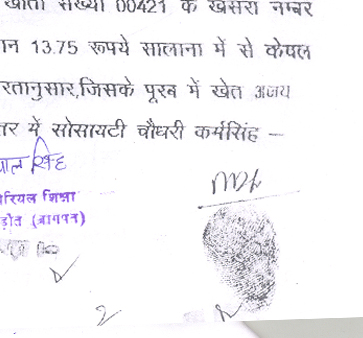 खाता संख्या 00421 के खसरा नम्बर
ान 13.75 रूपये सालाना में से केवल
रतानुसार,जिसके पूरब में खेत अजय
तर में सोसायटी चौधरी कर्मसिंह —
पाल सिंह
ोरियल शिक्षा
ड़ौत (बागपत)